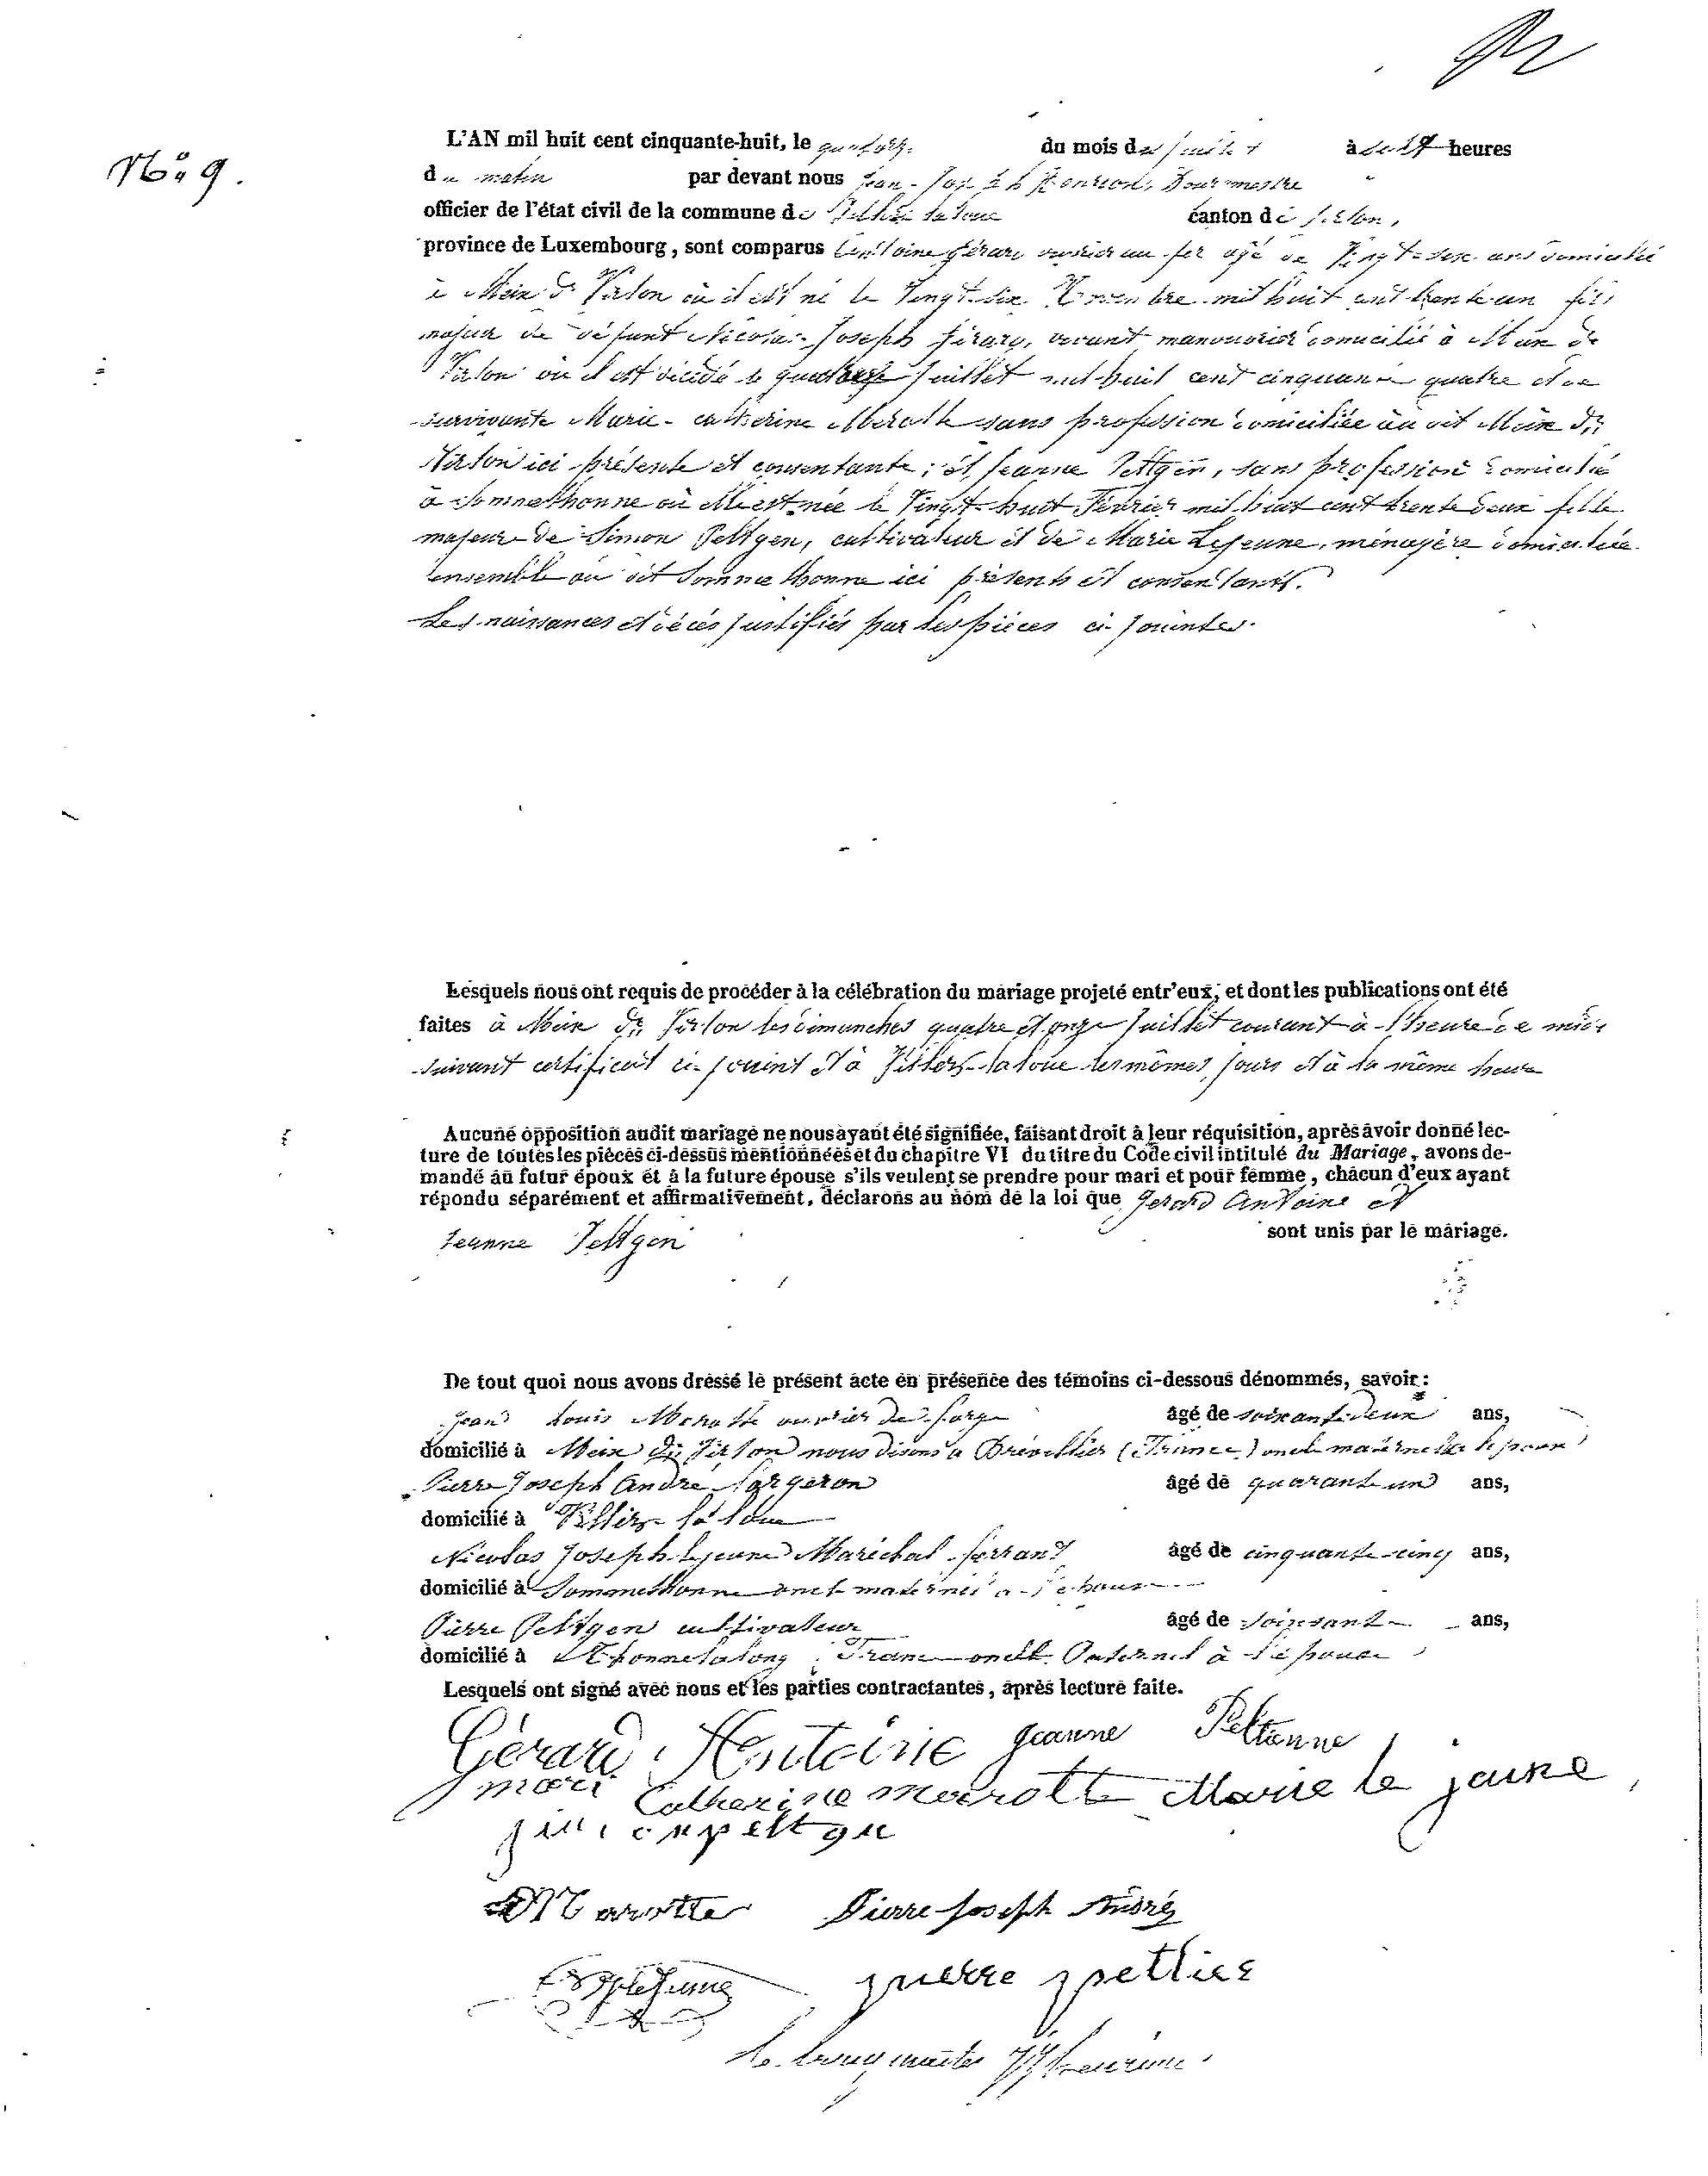 N° 9.
L'AN mil huit cent cinquante-huit, le quatorze du mois de juillet à sept heures
du matin par devant nous Jean-Joseph Henrion, Bourgmestre
officier de l'état civil de la commune de Villers-la-loue canton de Virton,
province de Luxembourg, sont comparus Antoine Gérard ouvrier au fer âgé de Vingt-six ans domicilié
à Meix Dt Virton où il est né le Vingt-six mil huit cent trente un fils
majeur de défunt Nicolas-Joseph Gérard, vivant manouvrier domicilié à Meix dt
Virton où il est décédé le quatorze juillet mil huit cent cinquante quatre et de
survivante Marie-catherine Marotte sans profession domiciliée au dit Meix Dt
Virton ici présente et consentante; et Jeanne Peltgen, sans profession domiciliée
à Sommethonne où elle est née le Vingt-huit Février mil huit cent trente deux fille
majeure de Simon Peltgen, cultivateur et de Marie Lejeune, ménagère domiciliée
ensemble au dit Sommethonne ici présents et consentants.
Les naissances et décès justifiés par les pièces ci-jointes.
Lesquels nous ont requis de procéder à la célébration du mariage projeté entr'eux, et dont les publications ont été
faites à Meix Dt Virton les dimanches quatre et onze juillet courant à l'heure de midi
suivant certificat ci-joint et à Villers-la-loue les mêmes jours et à la même heure
Aucune opposition audit mariage ne nous ayant été signifiée, faisant droit à leur réquisition, après avoir donné lec-
ture de toutes les pièces ci-dessus mentionnées et du chapitre VI du titre du Code civil intitulé du Mariage, avons de-
mandé au futur époux et à la future épouse s'ils veulent se prendre pour mari et pour femme, chacun d'eux ayant
répondu séparément et affirmativement, déclarons au nom de la loi que Gérard Antoine et
Jeanne Peltgen sont unis par le mariage.
De tout quoi nous avons dressé le présent acte en présence des témoins ci-dessous dénommés, savoir:
Jean Louis Marotte ouvrier de forge âgé de soixante deux ans,
domicilié à Meix Dt Virton nous disons à Brévillier (France) oncle maternel de l'époux
Pierre Joseph André forgeron âgé de quarante un ans,
domicilié à Villers-la-loue
Nicolas Joseph Lejeune Maréchal-ferrant âgé de cinquante-cinq ans,
domicilié à Sommethonne oncle maternel à l'épouse
Pierre Peltgen cultivateur âgé de soixante ans,
domicilié à Thonnelalong France oncle Paternel à l'épouse
Lesquels ont signé avec nous et les parties contractantes, après lecture faite.
Gérard Antoine Jeanne Peltenne
mari Catherine Marotte Marie le jeune
simon peltgen
Marotte Pierre Joseph André
Lejeune pierre pettier
le bourgmestre JJ Henrion.